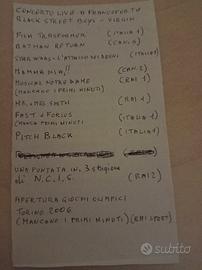 CONCERTO LIVE A FRANCOFORTE
BLACK STREET BOYS - VIRGIN
FILM TRASFORMER (ITALIA 1)
BATMAN RETURN (CAN. 5)
STAR WARS - L'ATTACCO DEI CLONI (ITALIA 1)
MAMMA MIA!! (CAN. 5)
MUSICAL NOTRE DAME (RAI 1)
(MANCANO I PRIMI MINUTI)
MR. e MRS SMITH (RAI 1)
FAST & FURIOUS (ITALIA 1)
(MANCA PRIMI MINUTI)
PITCH BLACK (ITALIA 1)
UNA PUNTATA IN 3 STAGIONE
di N.C.I.S. (RAI 2)
APERTURA GIOCHI OLIMPICI
TORINO 2006
(MANCANO I PRIMI MINUTI) (RAI SPORT)
subito